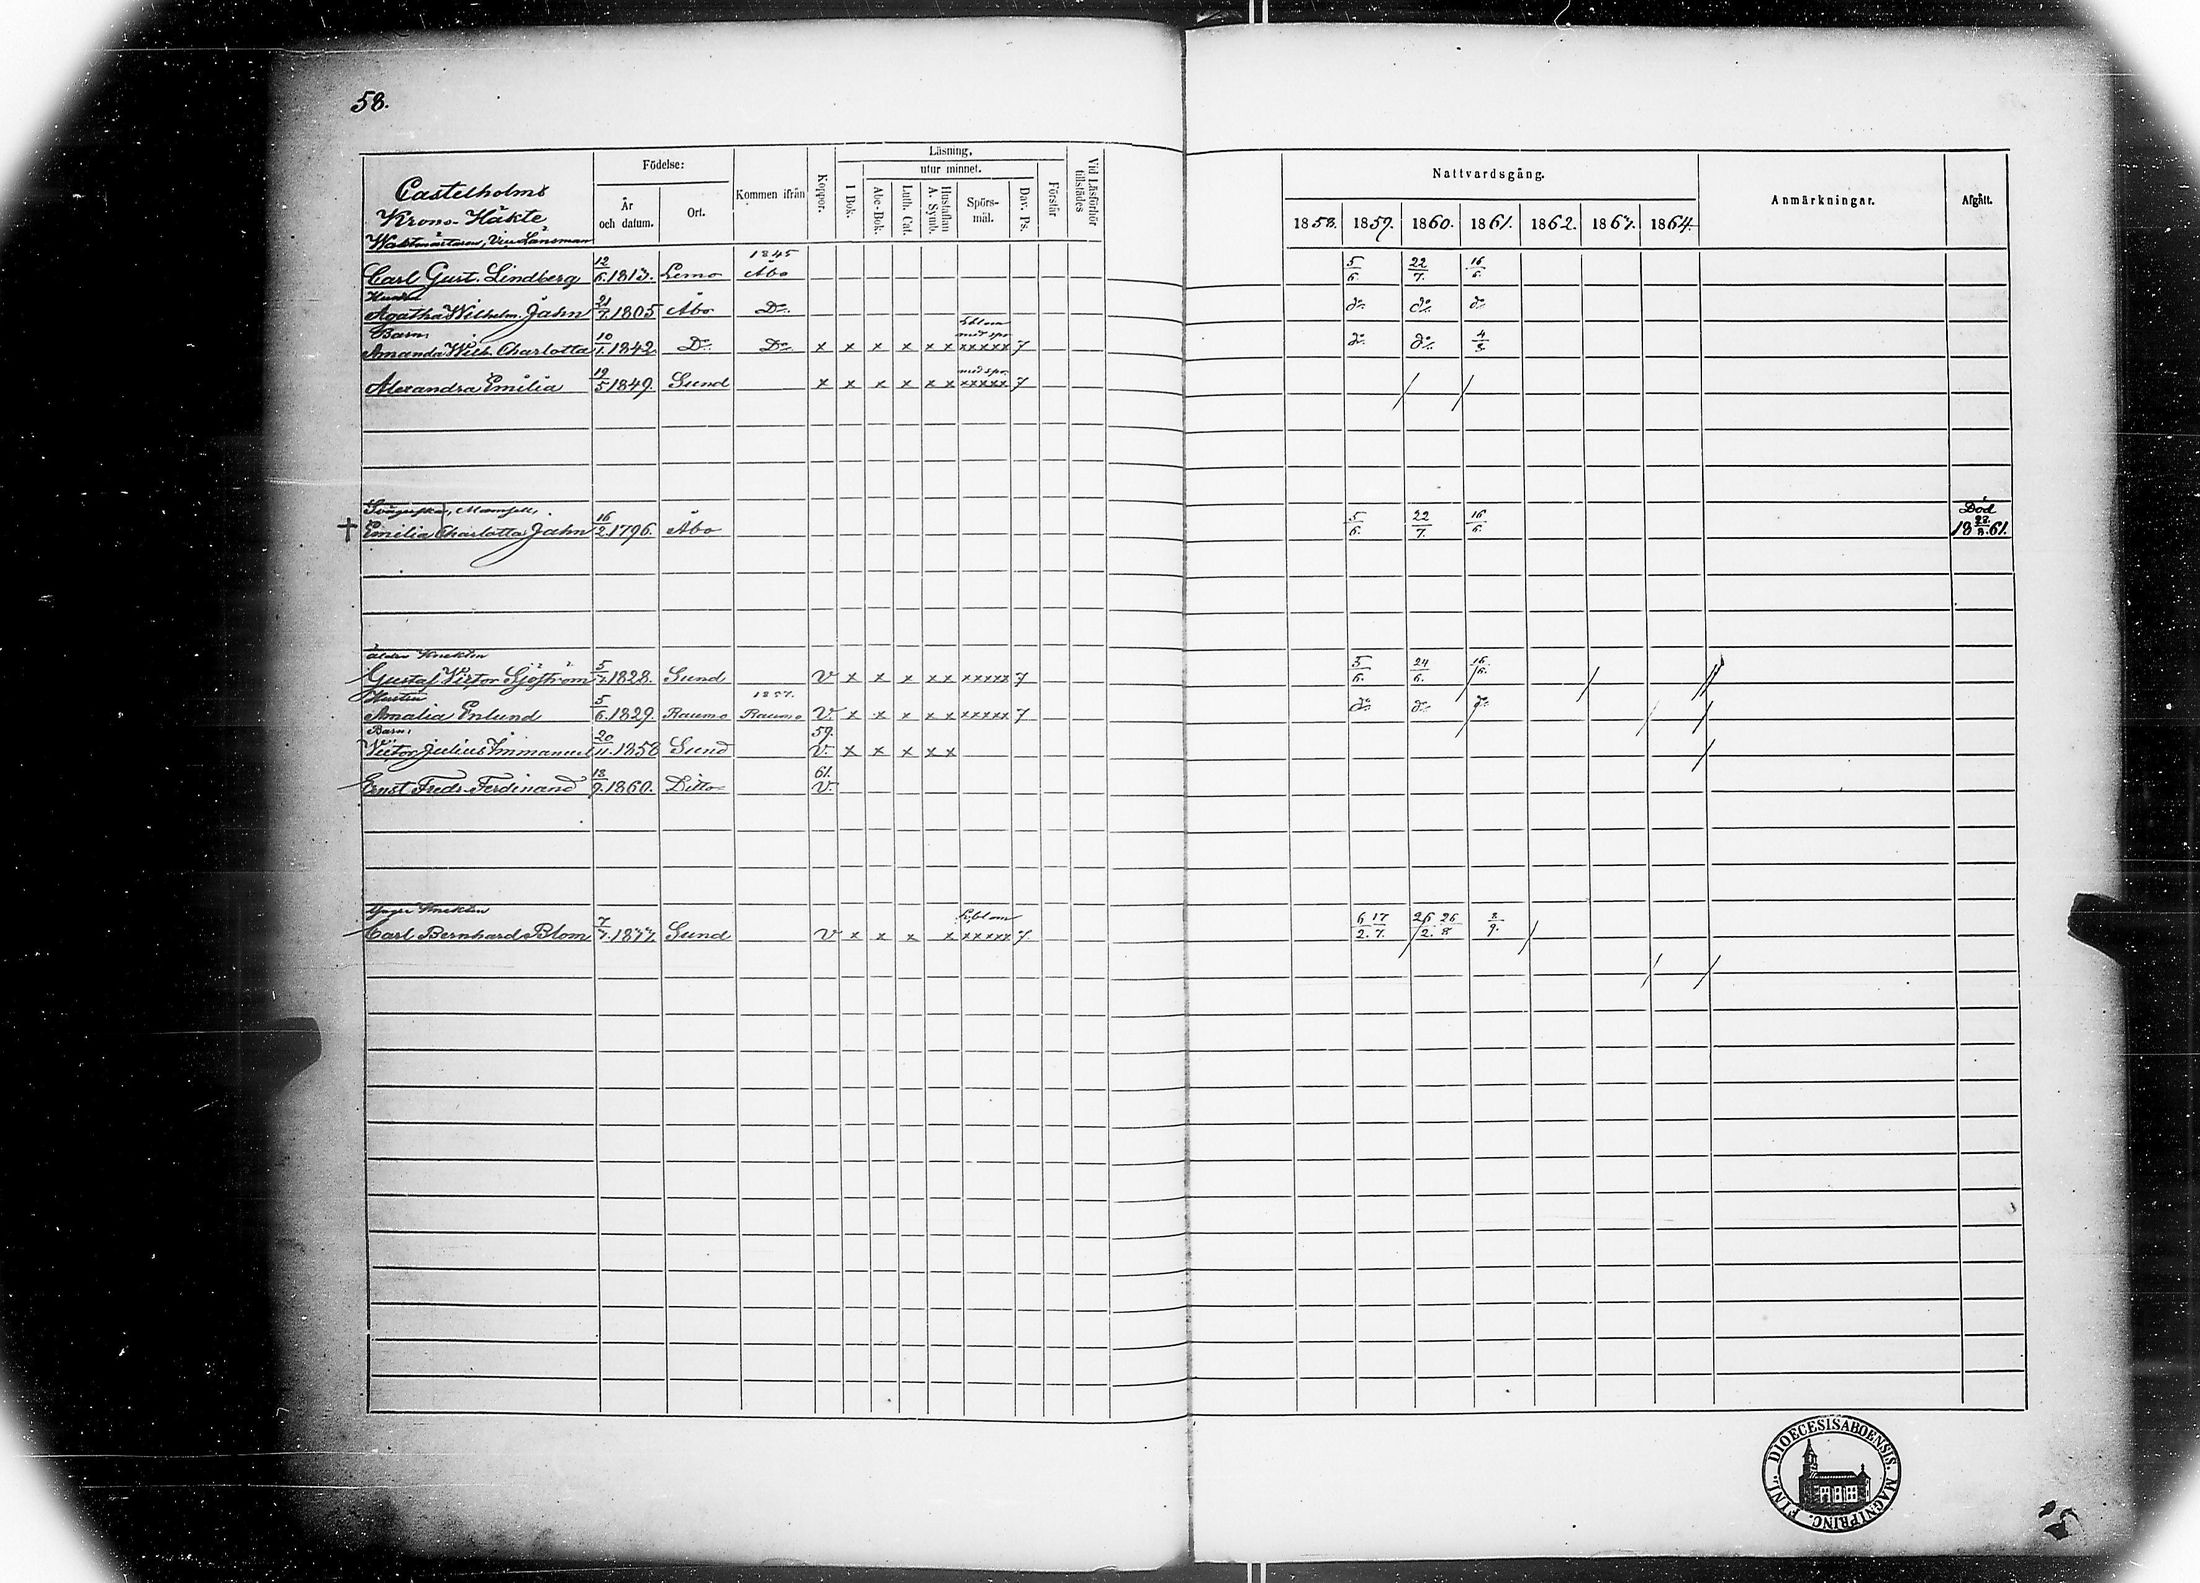 58.
Castelholms
Krono-Häkte
Födelse:
År och datum.
Ort.
Kommen ifrån
Koppor.
Läsning,
utur minnet.
I Bok.
Abc-Bok.
Luth. Cat.
Hustaflan A. Symb.
Spörs-mål.
Dav. Ps.
Förstår
Vid Läsförhör tillstädes
Nattvardsgång.
1858. 1859. 1860. 1861. 1862. 1863. 1864.
Anmärkningar.
Afgått.
Waktmästaren, Vice Länsman
1845
Carl Gust. Lindberg 12/6. 1813. Lemo Åbo 5/6. 22/7. 16/6.
Hustrun
Agatha Wilhelm. Jahn 21/7. 1805 Åbo Do. do. do. do.
Barn:
Amanda Wilh. Charlotta 10/1. 1842. Do. Do. x x x x x x xxxxx 7 do. do. 4/8
med spr.
Alexandra Emilia 19/5 1849. Sund x x x x x x xxxxx 7 / /
Svägerskan, Mamsell,
† Emilia Charlotta Jahn 16/2. 1796. Åbo 5/6. 22/7. 16/6. Död 18 22/8. 61.
äldre Knekten
Gustaf Victor Sjöström 5/7. 1828. Sund V x x x x x xxxxx 7 5/6. 24/6. 16/6. / / /
Hustru 1857.
Amalia Enlund 5/6. 1829. Raumo Raumo V. x x x x x xxxxx 7 do. do. do. / / /
Barn: 59.
Victor Julius Immanuel 20/11. 1858 Sund V. x x x x x /
61.
Ernst Fredr. Ferdinand 18/9. 1860. Ditto V.
Yngre Knekten
Carl Bernhard Blom 7/7. 1837. Sund V x x x x xxxxx 7. 6/2. 17/7. 26/2. 26/8 8/9. / /
/ /
FINL. DIOECESIS ABOENSIS. MAGNI PRINC.